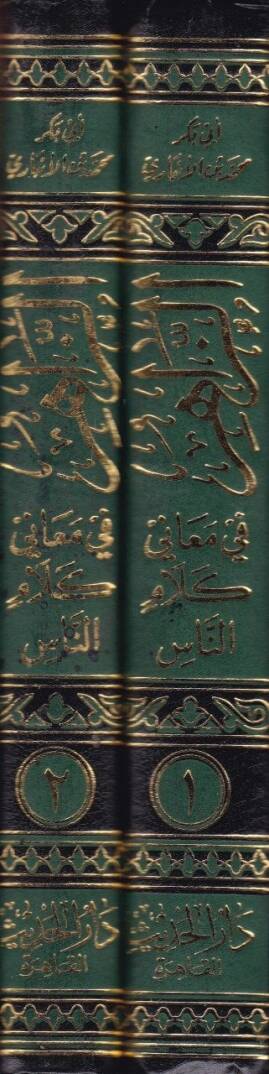 أبي بكر
محمد بن الأنباري
الزاهر
في معاني
كلام
الناس
١
دار الحديث
القاهرة
أبي بكر
محمد بن الأنباري
الزاهر
في معاني
كلام
الناس
٢
دار الحديث
القاهرة